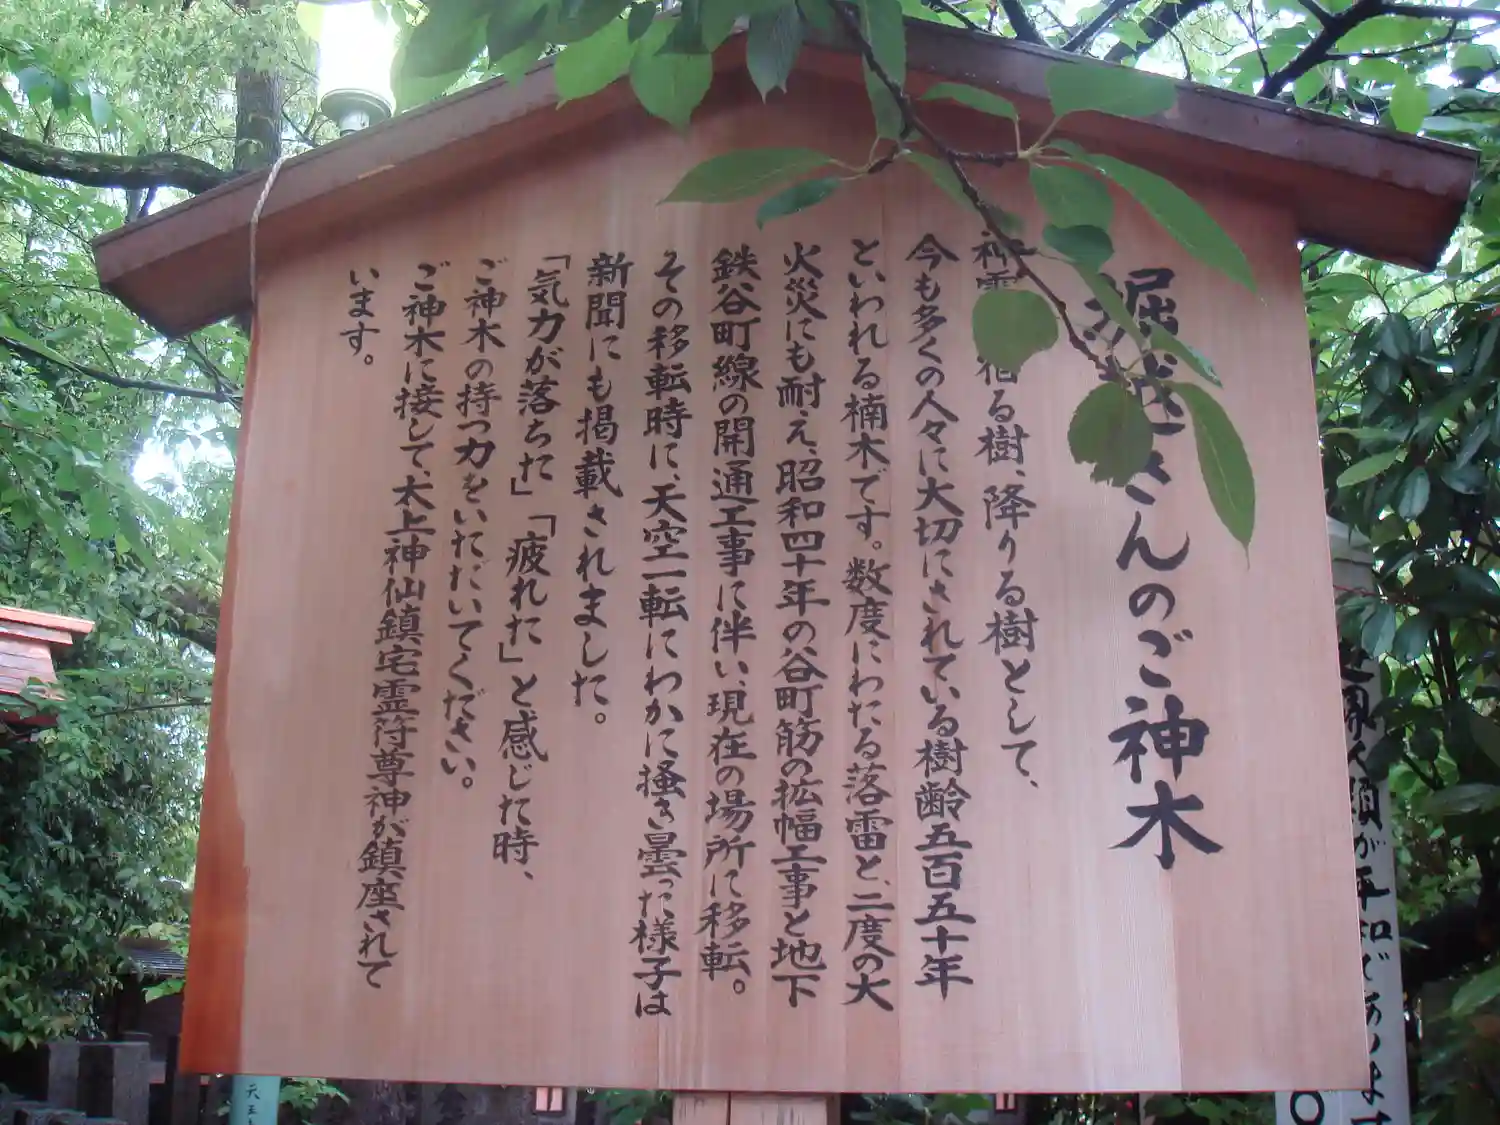 堀越さんのご神木
神霊宿る樹、降りる樹として、
今も多くの人々に大切にされている樹齢五百五十年
といわれる楠木です。数度にわたる落雷と、二度の大
火災にも耐え、昭和四十年の谷町筋の拡幅工事と地下
鉄谷町線の開通工事に伴い、現在の場所に移転。
その移転時に、天空一転にわかに掻き曇った様子は
新聞にも掲載されました。
「気力が落ちた」「疲れた」と感じた時、
ご神木の持つ力をいただいてください。
ご神木に接して、太上神仙鎮宅霊符尊神が鎮座されて
います。
人類が平和でありま
天王